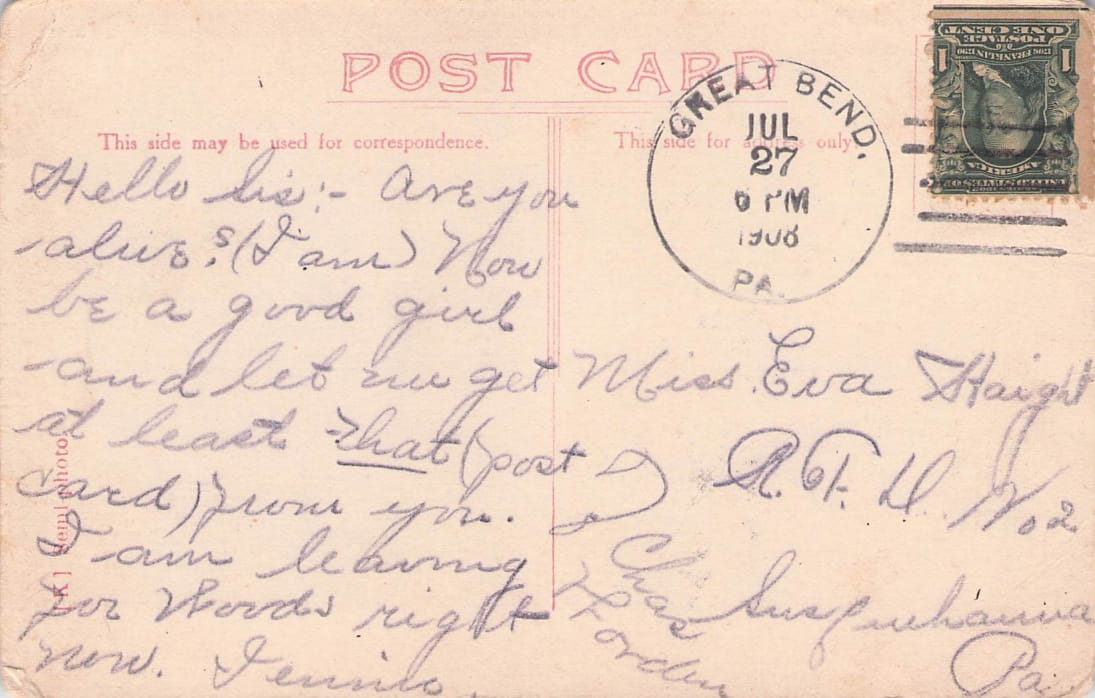 POST CARD
This side may be used for correspondence.
This side for address only
GREAT BEND.
JUL
27
6 PM
1908
PA.
SERIES 1902
UNITED STATES OF
AMERICA
1 1
FRANKLIN
POSTAGE
ONE CENT
Hello Sis:- Are you
alive? (I am) Now
be a good girl
and let me get
at least that (post
card) from you.
I am leaving
for Woods right
now. Jennie.
Miss Eva Haight
R. F. D. No 2
Susquehanna
Pa.
Chas
[K] Semi photo